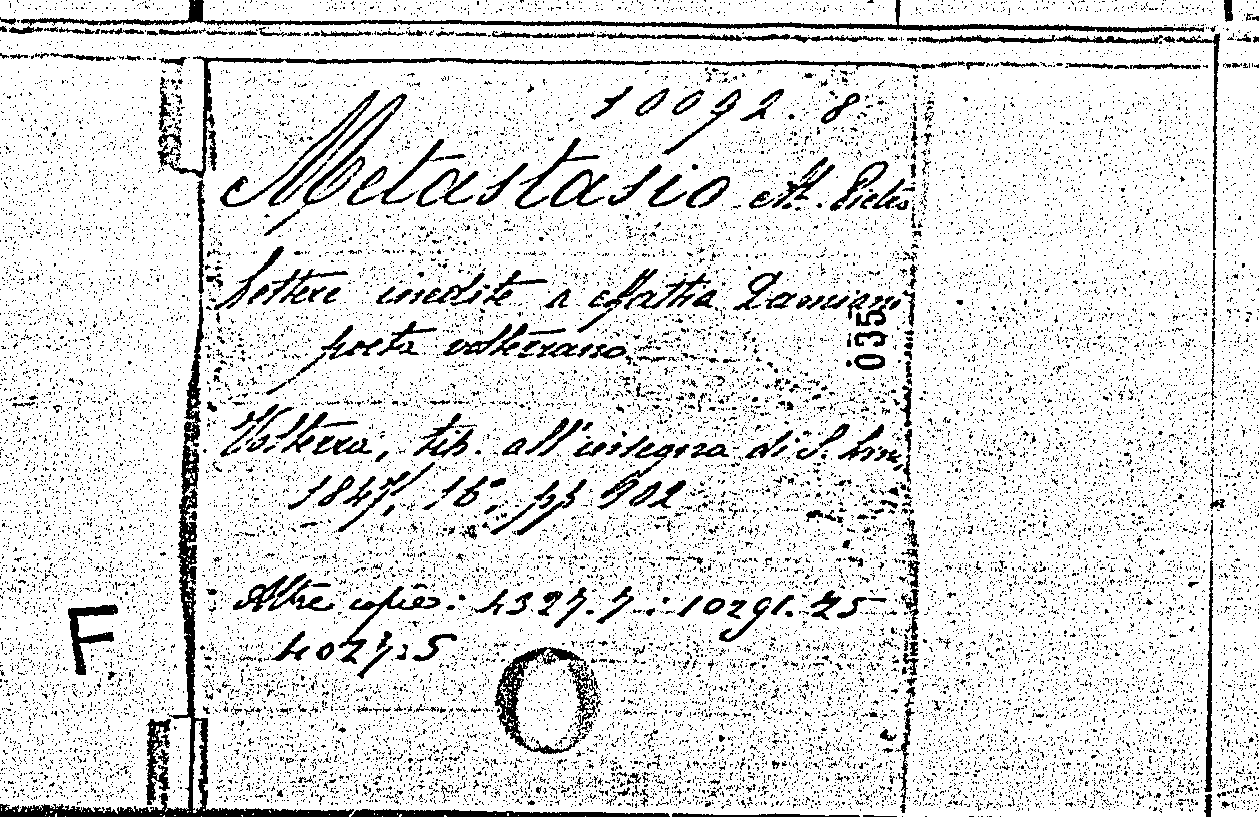 10092.8
Metastasio Ab. Pietro
Lettere inedite a Mattia Damiani
poeta volterrano
035
Volterra, tip. all'insegna di S. Lino,
1847, 16°, pp
Altre copie: 4327.7: 10291.25
4027:5
F